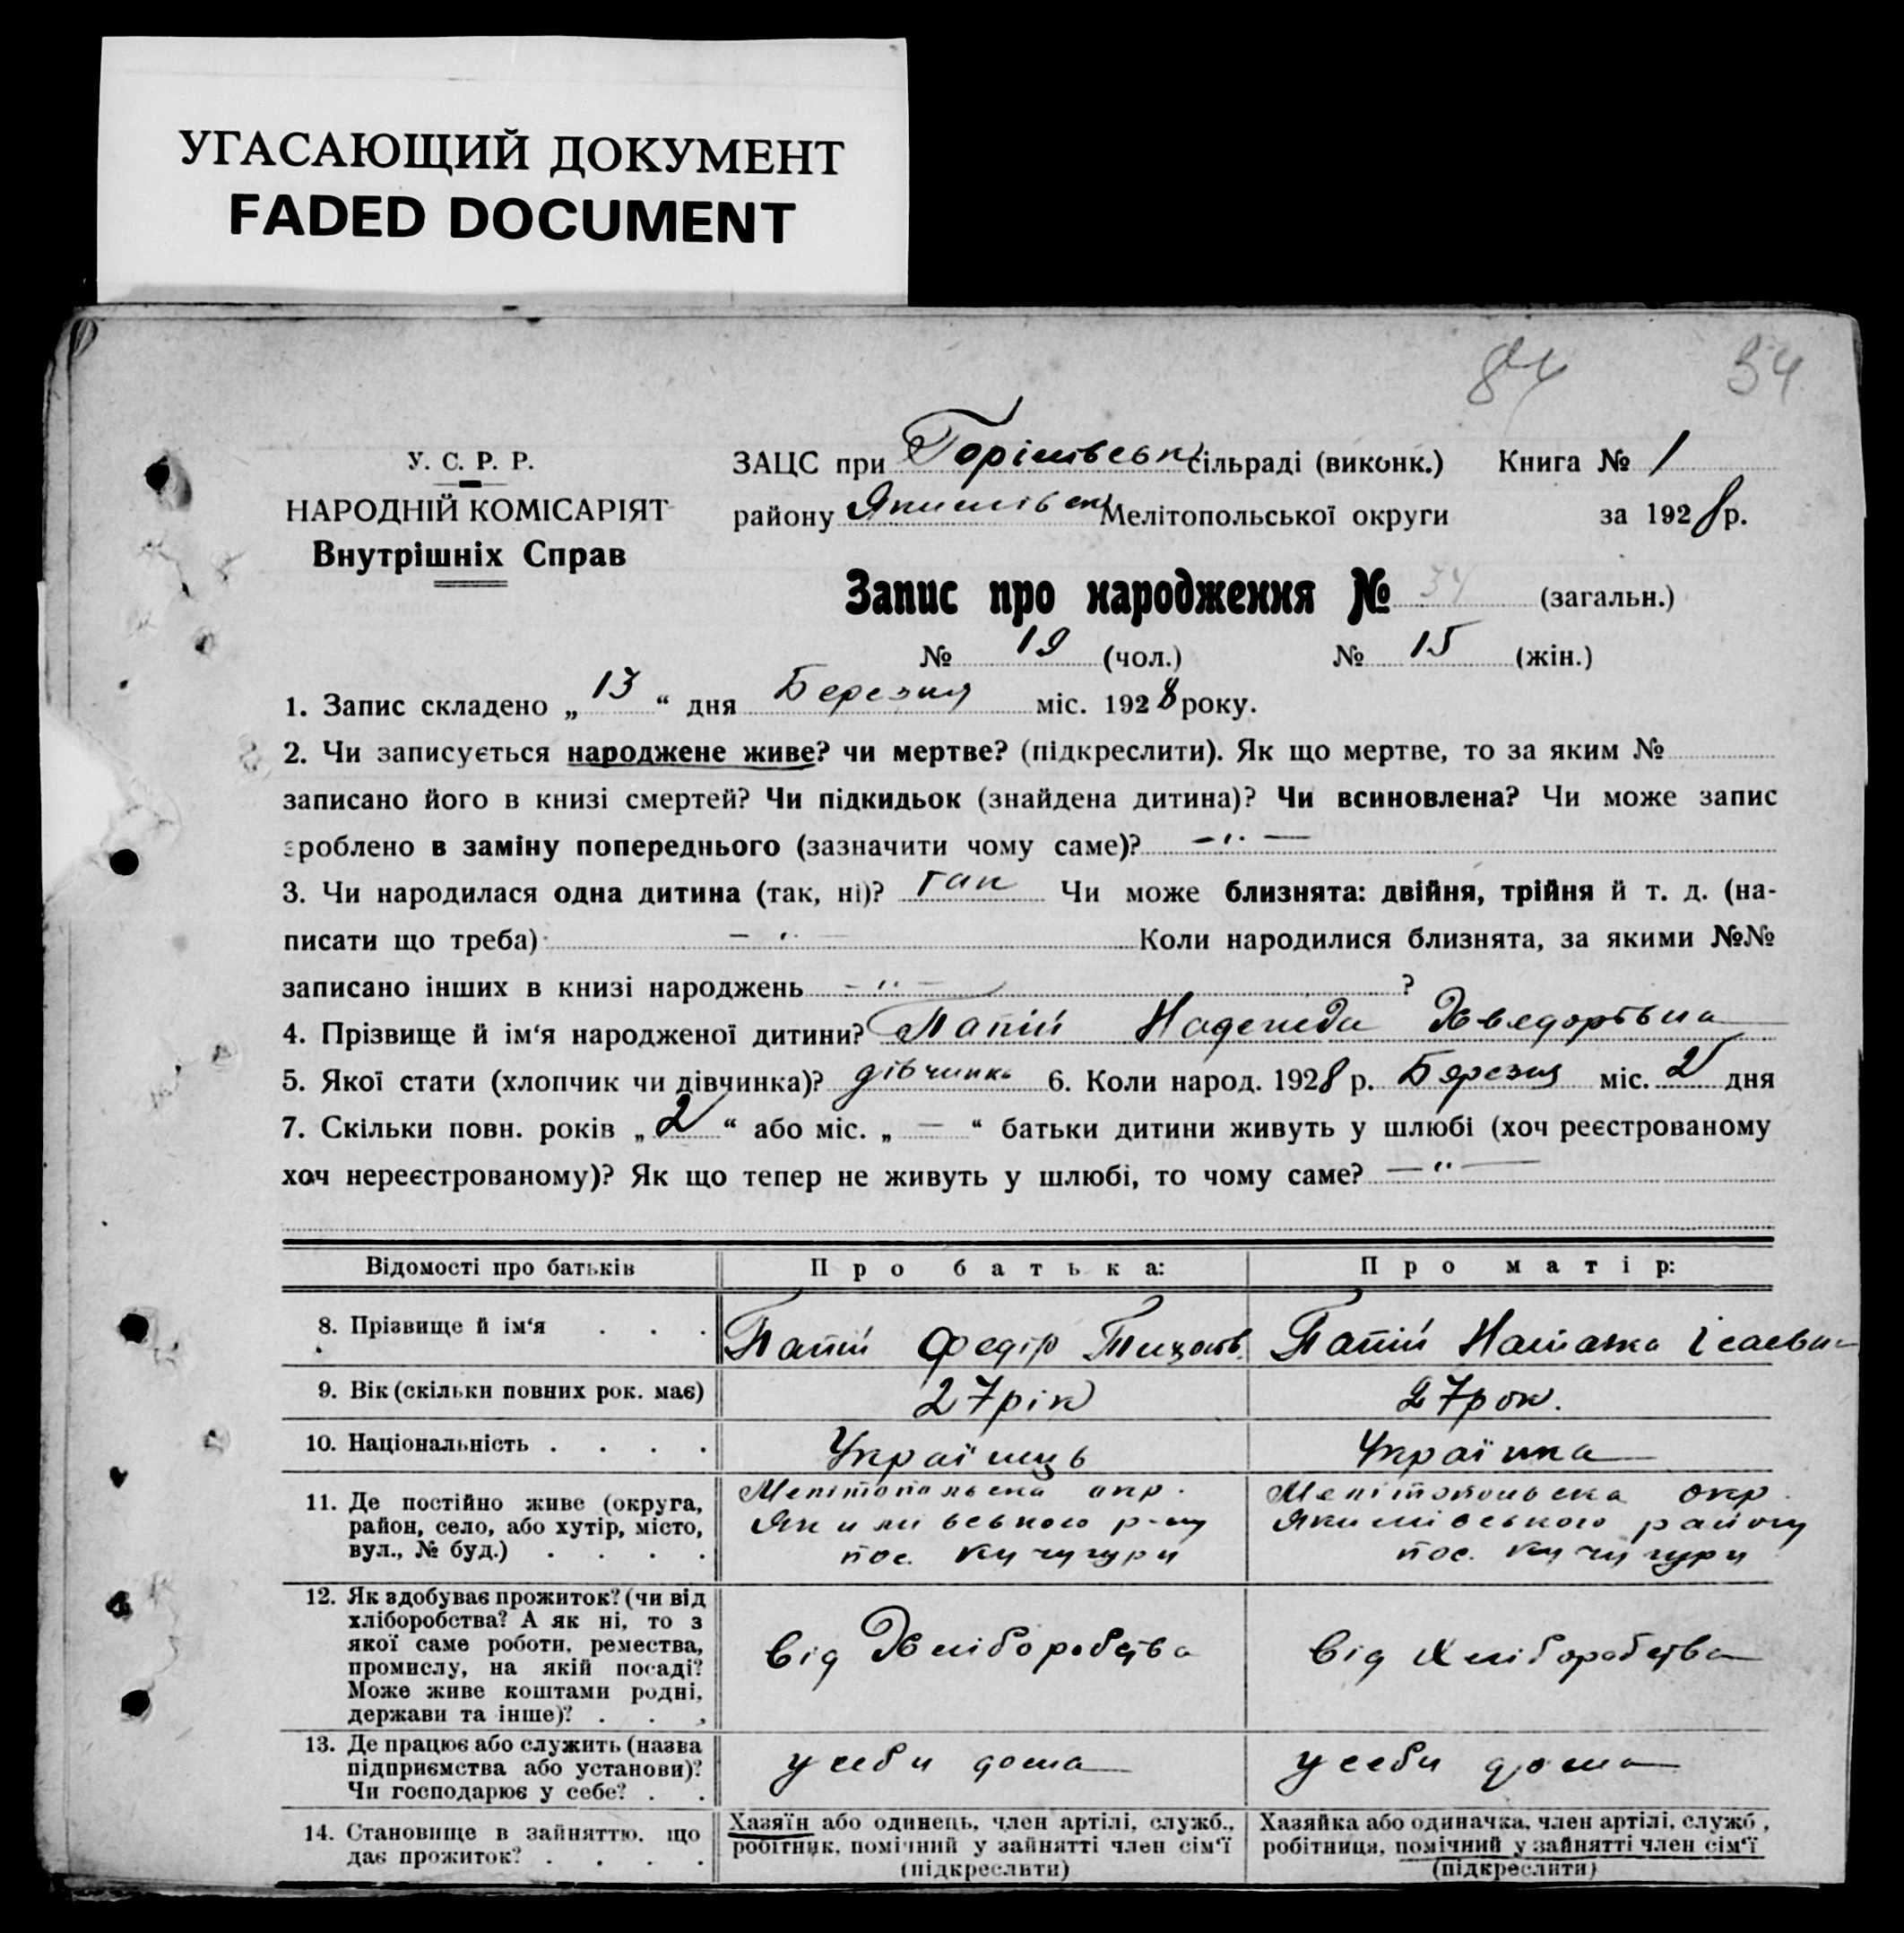 УГАСАЮЩИЙ ДОКУМЕНТ
FADED DOCUMENT
84 34
У. С. Р. Р.
НАРОДНІЙ КОМІСАРІЯТ
Внутрішніх Справ
ЗАЦС при Горіливськ сільраді (виконк.) Книга № 1
району Якимівськ Мелітопольської округи за 1928 р.
Запис про народження № 34 (загальн.)
№ 19 (чол.) № 15 (жін.)
1. Запис складено „ 13 “ дня Березня міс. 1928 року.
2. Чи записується народжене живе? чи мертве? (підкреслити). Як що мертве, то за яким №
записано його в книзі смертей? Чи підкидьок (знайдена дитина)? Чи всиновлена? Чи може запис
зроблено в заміну попереднього (зазначити чому саме)? —"—
3. Чи народилася одна дитина (так, ні)? так Чи може близнята: двійня, трійня й т. д. (на-
писати що треба) —"— Коли народилися близнята, за якими №№
записано інших в книзі народжень —"— ?
4. Прізвище й ім‘я народженої дитини? Папій Надежда
5. Якої стати (хлопчик чи дівчинка)? дівчинка 6. Коли народ. 1928 р. Березня міс. 2 дня
7. Скільки повн. років „ 2 “ або міс. „ — “ батьки дитини живуть у шлюбі (хоч реєстрованому
хоч нереєстрованому)? Як що тепер не живуть у шлюбі, то чому саме? —"—
Відомості про батьків Про батька: Про матір:
8. Прізвище й ім‘я . . . Папій Федір Папій Наталка Ісаевн
9. Вік (скільки повних рок. має) 27 рік 27 рок.
10. Національність . . . . Українць Українка
11. Де постійно живе (округа, район, село, або хутір, місто, вул., № буд.) . . . .
Мелітопольска окр. Мелітопольска окр.
Якимівського р-ну Якимівського району
пос. Кучугури пос. Кучугури
12. Як здобуває прожиток? (чи від хліборобства? А як ні, то з якої саме роботи, ремества, промислу, на якій посаді? Може живе коштами родні, держави та інше)? . . .
від Хліборобства від Хліборобства
13. Де працює або служить (назва підприємства або установи)? Чи господарює у себе? . .
у себи дома у себи дома
14. Становище в зайняттю, що дає прожиток? . . . .
Хазяїн або одинець, член артілі, служб., робітник, помічний у зайнятті член сім‘ї (підкреслити)
Хазяйка або одиначка, член артілі, служб., робітниця, помічний у зайнятті член сім‘ї (підкреслити)